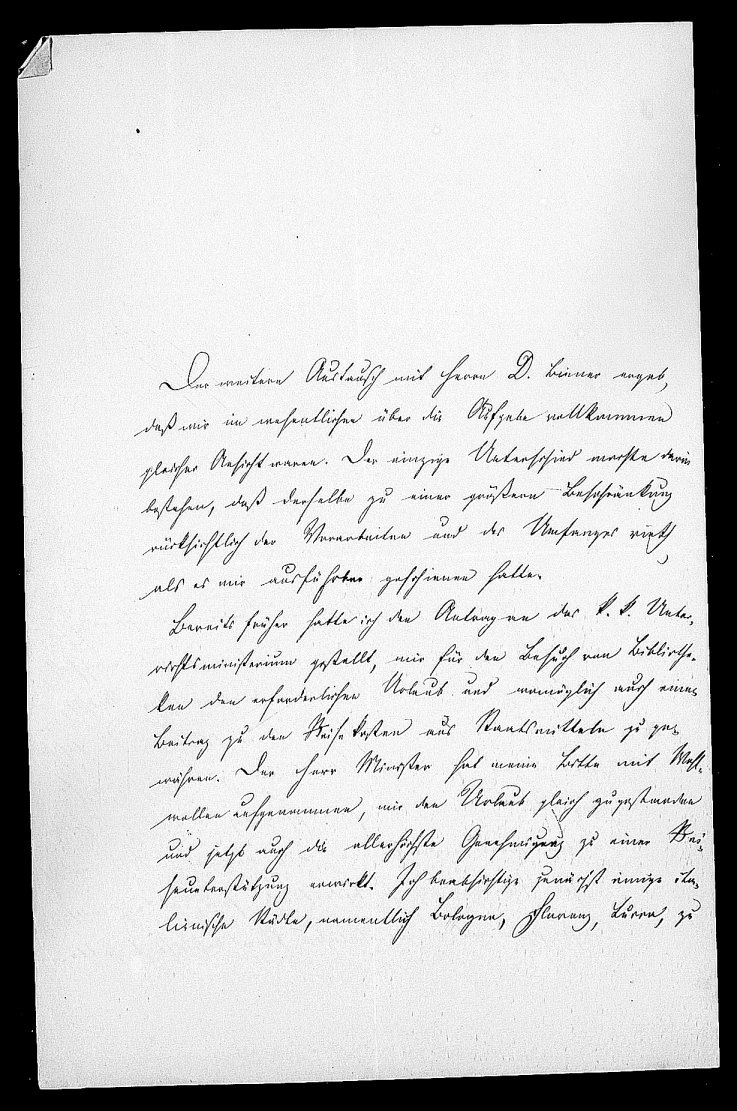 Der weitere Austausch mit Herrn D. Binner ergab,
daß wir im wesentlichen über die Aufgabe vollkommen
gleicher Ansicht waren. Der einzige Unterschied mochte darin
bestehen, daß derselbe zu einer größern Beschränkung
rücksichtlich der Vorarbeiten und des Umfanges rieth,
als es mir ausführbar geschienen hatte.
Bereits früher hatte ich den Antrag an das k. k. Unter-
richtsministerium gestellt, mir für den Besuch von Bibliothe-
ken den erforderlichen Urlaub und womöglich auch einen
Beitrag zu den Reisekosten aus Staatsmitteln zu ge-
währen. Der Herr Minister hat meine Bitte mit Wohl-
wollen aufgenommen, mir den Urlaub gleich zugestanden
und jetzt auch die allerhöchste Genehmigung zu einer Rei-
seunterstützung erwirkt. Ich beabsichtige zunächst einige ita-
lienische Städte, namentlich Bologna, Florenz, Lucca, zu